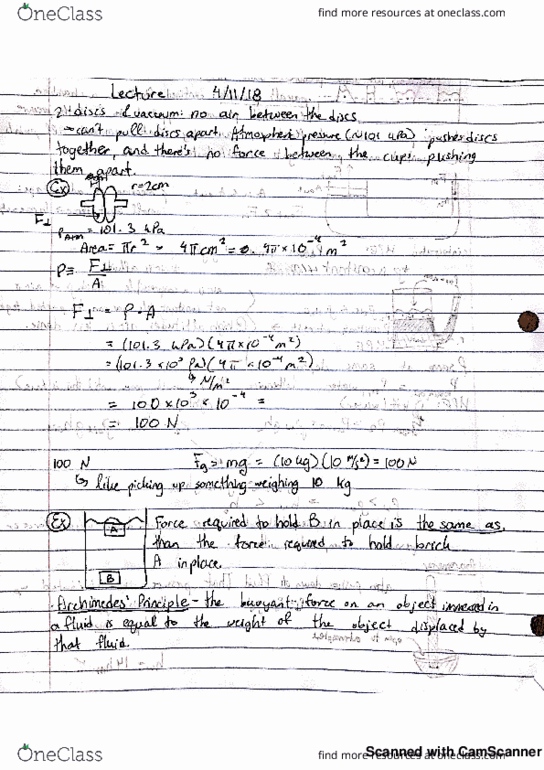 OneClass
find more resources at oneclass.com
Lecture 4/11/18
2 discs & vacuum: no air between the discs
→ can't pull discs apart. Atmospheric pressure (~101 kPa) pushes discs
together, and there's no force between the cups pushing
them apart.
Ex r=2cm
F⊥
P_Atm = 101.3 kPa
Area = πr² = 4πcm² = 4π×10⁻⁴ m²
P = F⊥/A
F⊥ = P·A
= (101.3 kPa)(4π×10⁻⁴ m²)
= (101.3 ×10³ Pa)(4π ×10⁻⁴ m²)
↳ N/m²
= 100 ×10³ × 10⁻⁴ =
= 100 N
100 N Fg = mg = (10 kg)(10 m/s²) = 100 N
↳ like picking up something weighing 10 kg
Ex A Force required to hold B in place is the same as,
than the force required to hold brick
A in place.
B
Archimedes' Principle - the buoyant force on an object immersed in
a fluid is equal to the weight of the object displaced by
that fluid.
OneClass
find more resources at oneclass.com
Scanned with CamScanner